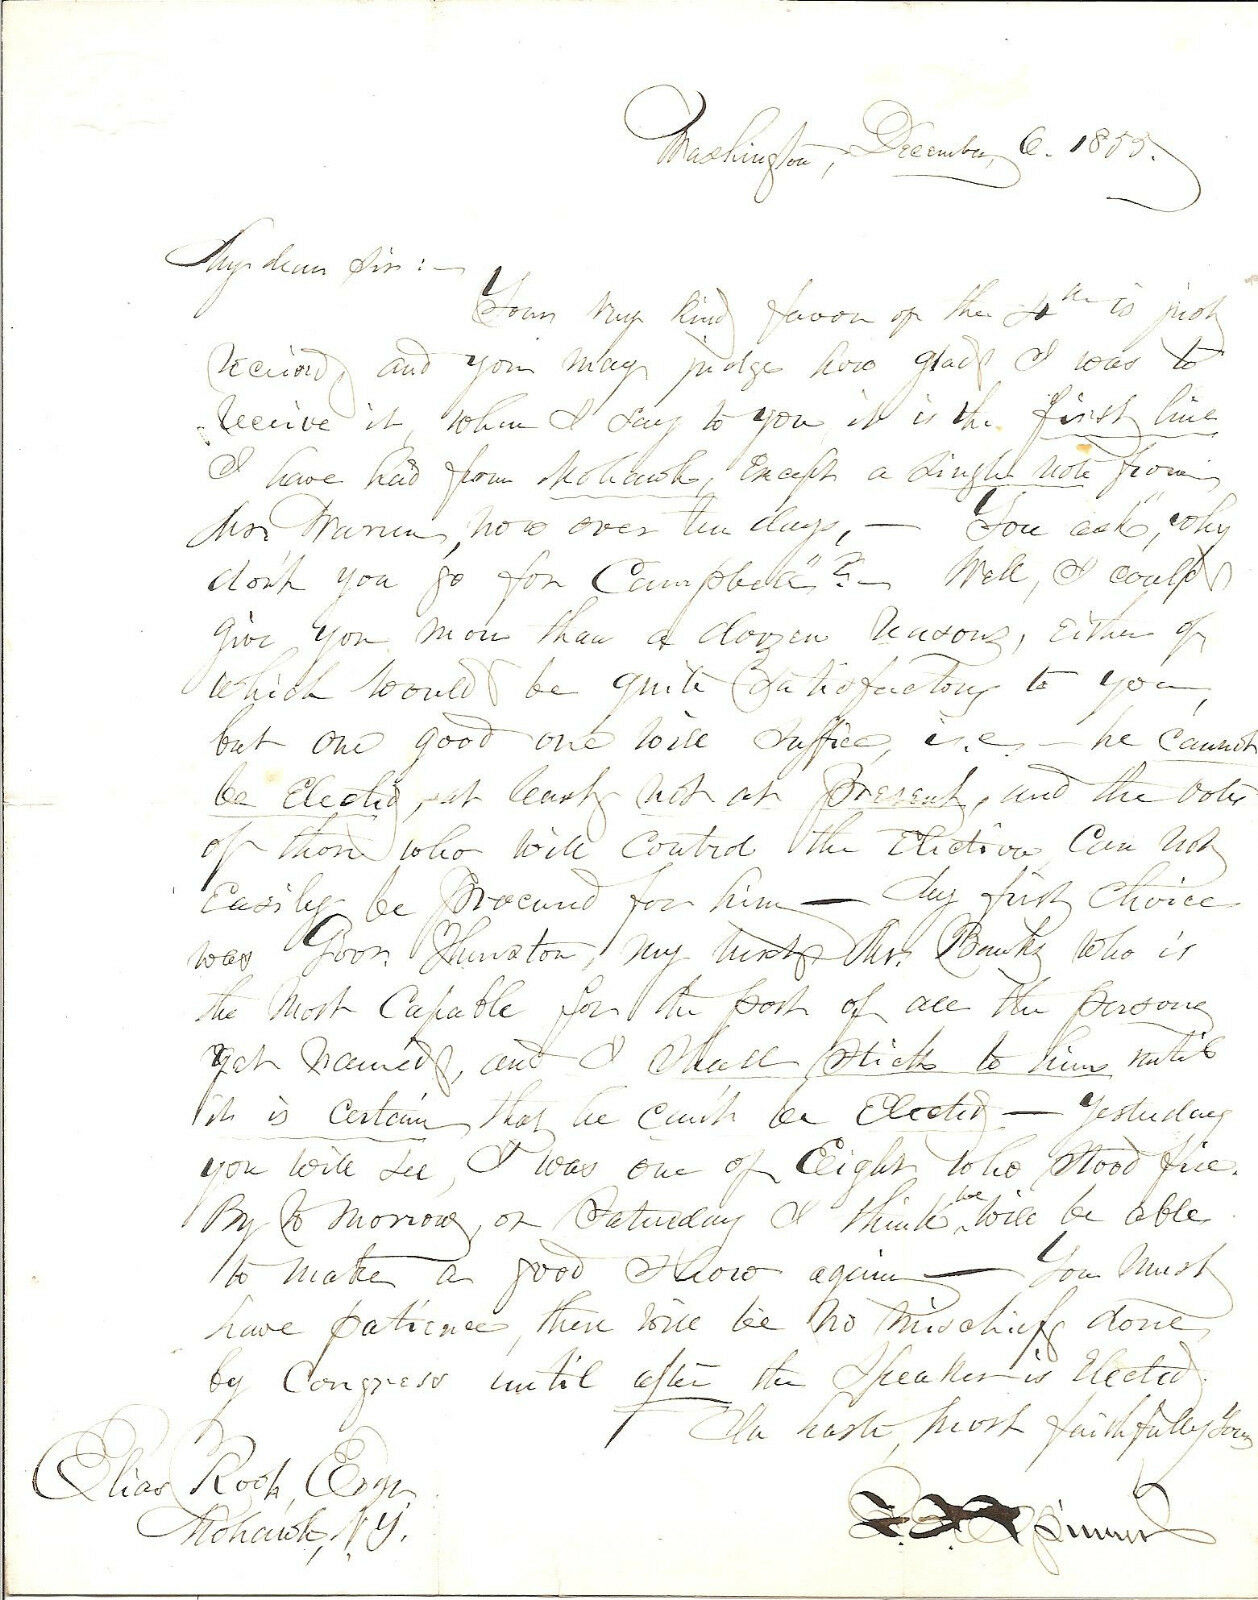 Washington, December, 6. 1855.
My dear Sir:—
Your very kind favor of the 4th is just
received, and you may judge how glad I was to
receive it, when I say to you, it is the first line
I have had from Mohawk, except a single note from
Mr. Warren, now over ten days,— You ask, "why
don't you go for Campbell"?— Well, I could
give you more than a dozen reasons, either of
which would be quite satisfactory to you,
but one good one will suffice, i.e.— he cannot
be Elected, at least not at present, and the votes
of those who will control the Election can not
easily be procured for him— My first choice
was Gov. Thurston, my next Mr. Banks who is
the most capable for the post of all the persons
yet named, and I shall stick to him until
it is certain that he can't be Elected— Yesterday
you will see, I was one of Eight who stood fire.
By to morrow, or Saturday I think we will be able
to make a good show again— You must
have patience, there will be no mischief done
by Congress until after the Speaker is Elected.
In haste, most faithfully Yours
F. E. Spinner
Elias Root, Esqr.
Mohawk, N.Y.